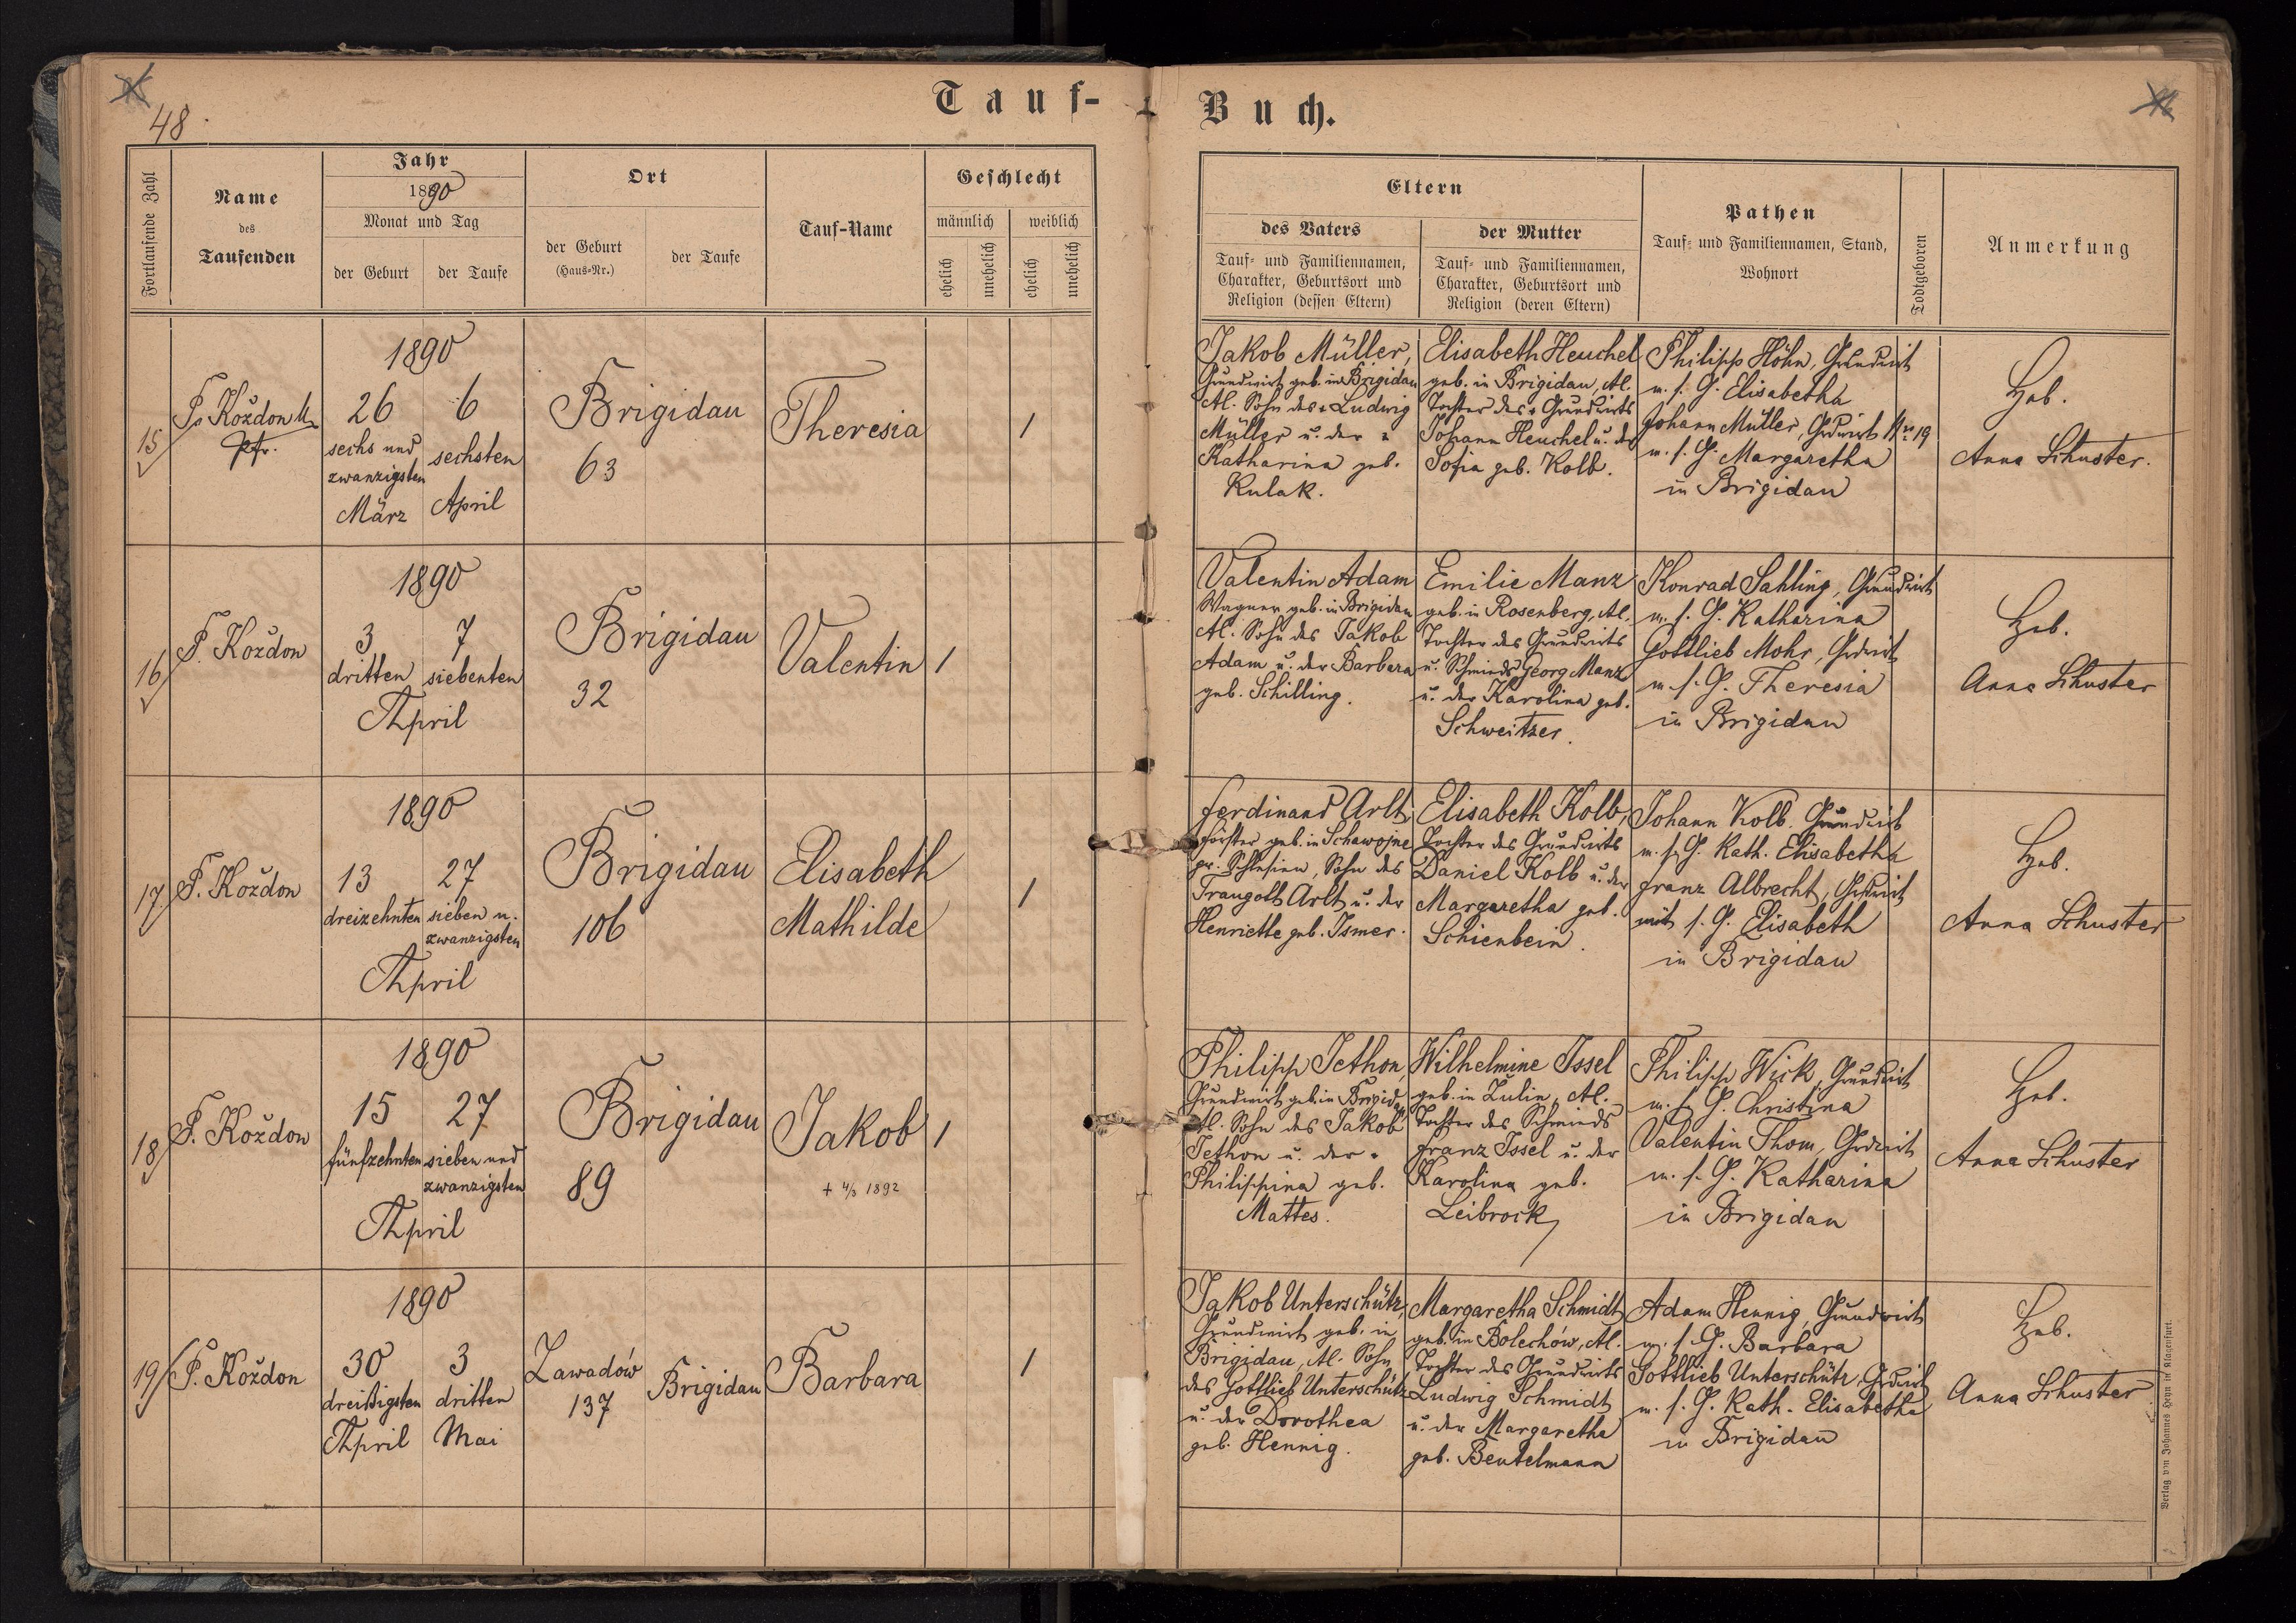 48.
Tauf-
Buch.
Fortlaufende Zahl
Name
des
Taufenden
Jahr
1890
Monat und Tag
der Geburt
der Taufe
Ort
der Geburt
(Haus-Nr.)
der Taufe
Tauf-Name
Geschlecht
männlich
weiblich
ehelich
unehelich
ehelich
unehelich
Eltern
des Vaters
Tauf- und Familiennamen,
Charakter, Geburtsort und
Religion (dessen Eltern)
der Mutter
Tauf- und Familiennamen,
Charakter, Geburtsort und
Religion (deren Eltern)
Pathen
Tauf- und Familiennamen, Stand,
Wohnort
Todtgeboren
Anmerkung
15
Koždon
Pfr.
1890
26
sechs und
zwanzigsten
März
6
sechsten
April
Brigidau
63
Theresia
1
Jakob Müller,
Grundwirt geb. in Brigidau
Al. Sohn des + Ludwig
Müller u. der
Katharina geb.
Kulak.
Elisabeth Heuchel
geb. in Brigidau, Al.
Tochter des + Grundwirts
Johann Heuchel u. der
Sofia geb. Kolb.
Philipp Höhn, Grundwirt
m. s. G. Elisabetha
Johann Müller, Grdwirt Nr. 19
m. s. G. Margaretha
in Brigidau
Heb.
Anna Schuster.
16
P. Koždon
1890
3
dritten
7
siebenten
April
Brigidau
32
Valentin
1
Valentin Adam
Wagner geb. in Brigidau
Al. Sohn des Jakob
Adam u. der Barbara
geb. Schilling.
Emilie Manz
geb. in Rosenberg, Al.
Tochter des Grundwirts
u. Schmieds Georg Manz
u. der Karolina geb.
Schweitzer.
Konrad Sahling, Grundwirt
m. s. G. Katharina
Gottlieb Mohr, Grdwirt
m. s. G. Theresia
in Brigidau
Heb.
Anna Schuster
17
P. Koždon
1890
13
dreizehnten
27
sieben u.
zwanzigsten
April
Brigidau
106
Elisabeth
Mathilde
1
Ferdinand Arlt,
Förster geb. in Schawojne
pr. Schlesien, Sohn des
Traugott Arlt u. der
Henriette geb. Ismer.
Elisabeth Kolb,
Tochter des Grundwirts
Daniel Kolb u. der
Margaretha geb.
Schienbein.
Johann Kolb, Grundwirt
m. s. G. Kath. Elisabetha
Franz Albrecht, Grdwirt
mit s. G. Elisabeth
in Brigidau
Heb.
Anna Schuster
18
P. Koždon
1890
15
fünfzehnten
27
sieben und
zwanzigsten
April
Brigidau
89
Jakob
+ 4/3 1892
1
Philipp Jethon,
Grundwirt geb. in Brigidau
Al. Sohn des Jakob
Jethon u. der
Philippina geb.
Mattes.
Wilhelmine Issel
geb. in Zulin, Al.
Tochter des Schmieds
Franz Issel u. der
Karolina geb.
Leibrock
Philipp Wick, Grundwirt
m. s. G. Christina
Valentin Thom, Grdwirt
m. s. G. Katharina
in Brigidau
Heb.
Anna Schuster
19
P. Koždon
1890
30
dreißigsten
April
3
dritten
Mai
Zawadów
137
Brigidau
Barbara
1
Jakob Unterschütz,
Grundwirt geb. in
Brigidau, Al. Sohn
des Gottlieb Unterschütz
u. der Dorothea
geb. Hennig.
Margaretha Schmidt
geb. in Bolechów, Al.
Tochter des Grundwirts
Ludwig Schmidt
u. der Margaretha
geb. Beutelmann
Adam Hennig, Grundwirt
m. s. G. Barbara
Gottlieb Unterschütz, Grdwirt
m. s. G. Kath. Elisabetha
in Brigidau
Heb.
Anna Schuster
Verlag von Johannes Heyn in Klagenfurt.